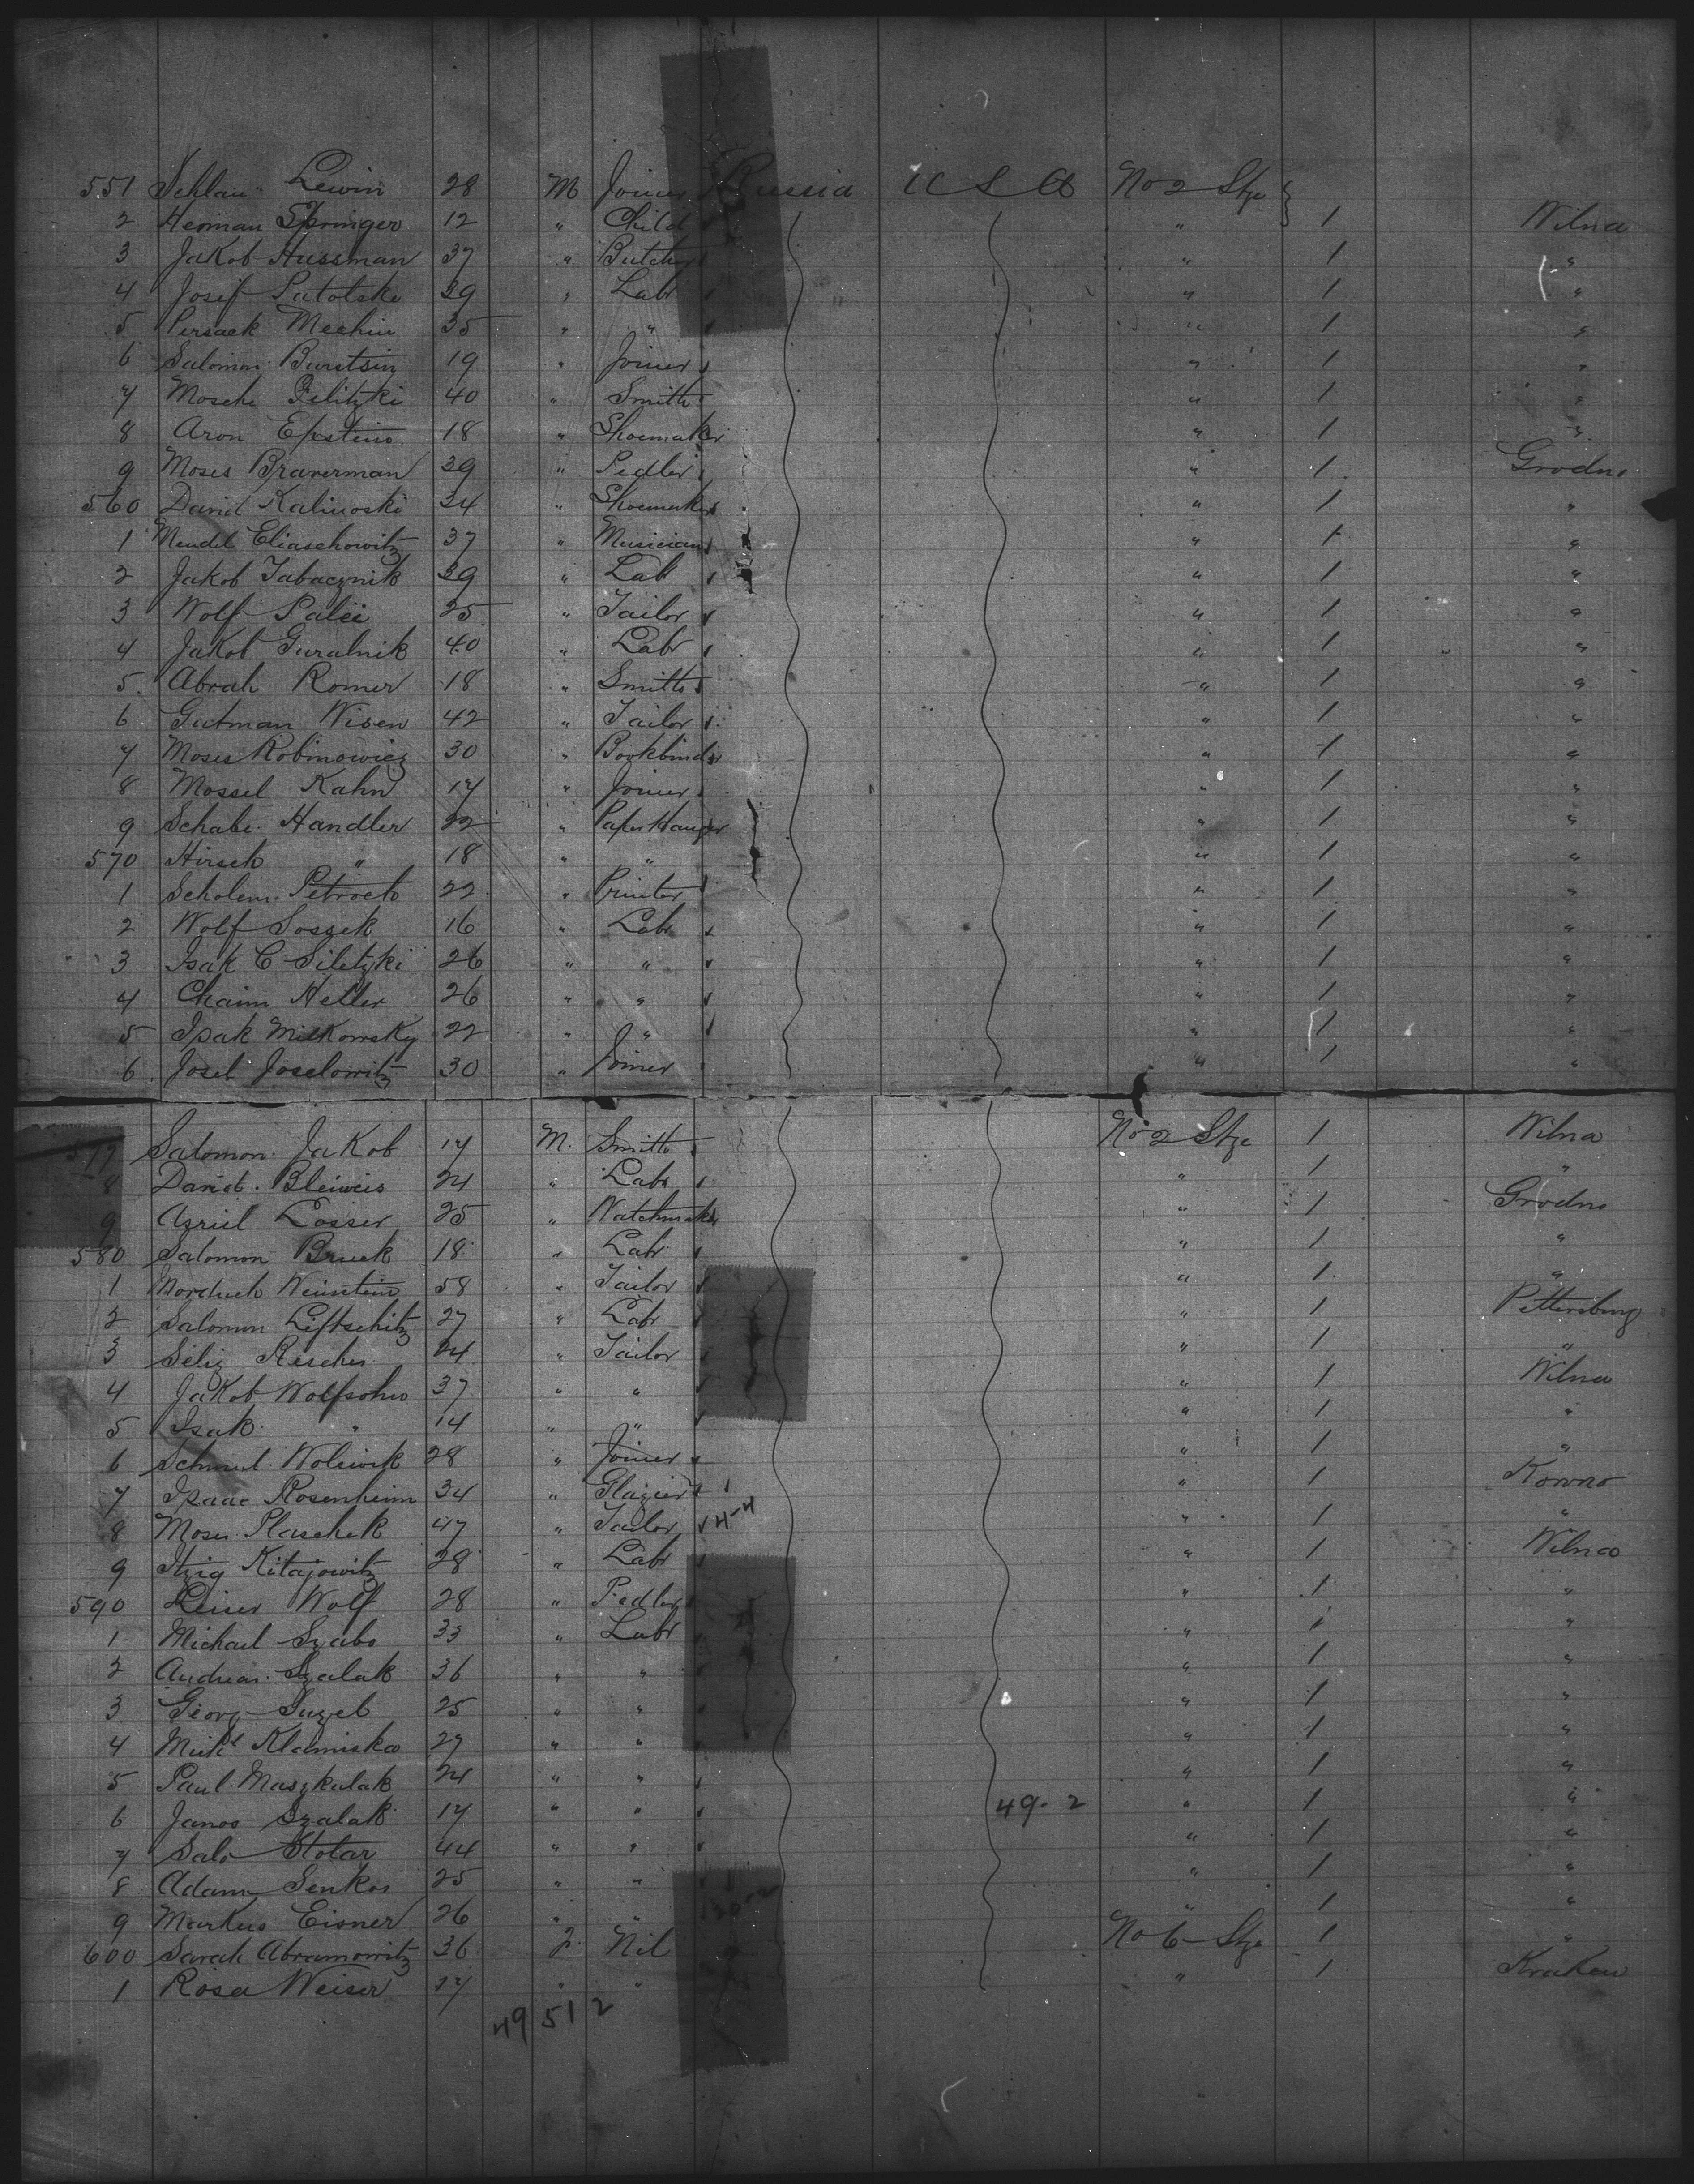 551 Schlau Lewin 28 M Joiner Russia U S A No 2 Stge
2 Herman Springer 12 " Child " 1 Wilna
3 Jakob Hussman 37 " Butcher " 1 "
4 Josif Patotski 39 " Labr " 1 "
5 Persack Mechin 35 " " " 1 "
6 Salomon Burstsin 19 " Joiner " 1 "
7 Mosche Filitzki 40 " Smith " 1 "
8 Aron Epstein 18 " Shoemaker " 1 "
9 Moses Braverman 39 " Pedler " 1 Grodno
560 David Kalinoski 34 " Shoemaker " 1 "
1 Mendel Eliaschowitz 37 " Musician " 1 "
2 Jakob Tabacznik 39 " Lab " 1 "
3 Wolf Palei 25 " Tailor " 1 "
4 Jakob Guralnik 40 " Labr " 1 "
5 Abrah Romer 18 " Smith " 1 "
6 Gutman Wisen 42 " Tailor " 1 "
7 Moses Robinowicz 30 " Bookbinder " 1 "
8 Mossel Kahn 17 " Joiner " 1 "
9 Schabe Handler 22 " Paper Hanger " 1 "
570 Hirsch " 18 " " " 1 "
1 Scholem Petroch 22 " Printer " 1 "
2 Wolf Soszek 16 " Labr " 1 "
3 Isak C Siletzki 26 " " " 1 "
4 Chaim Heller 26 " " " 1 "
5 Isak Milkowsky 22 " " " 1 "
6 Josel Joselowitz 30 " Joiner " 1 "
577 Salomon Jakob 17 M. Smith No 2 Stge 1 Wilna
8 David Bleiweis 24 " Labr " 1 "
9 Azriel Losser 25 " Watchmaker " 1 Grodno
580 Salomon Bruck 18 " Labr " 1 "
1 Morduch Weinstein 58 " Tailor " 1 "
2 Salomon Liftschitz 27 " Labr " 1 Pittersburg
3 Selig Rescher 24 " Tailor " 1 "
4 Jakob Wolfsohn 37 " " " 1 Wilna
5 Isak " 14 " " " 1 "
6 Schmul Wolewik 28 " Joiner " 1 "
7 Isaac Rosenheim 34 " Glazier " 1 Kowno
8 Moses Plaschek 47 " Tailor 4-4 " 1 "
9 Itzig Kitajowitz 28 " Labr " 1 Wilna
590 Leiser Wolf 28 " Pedler " 1 "
1 Michael Szabo 33 " Labr " 1 "
2 Andreas Szalak 36 " " " 1 "
3 Georg Suzel 25 " " " 1 "
4 Mike Klamiska 27 " " " 1 "
5 Paul Maszkulak 24 " " " 1 "
6 Janos Szalak 17 " " 49-2 " 1 "
7 Salo Stotar 44 " " " 1 "
8 Adam Senkos 25 " " " 1 "
9 Markus Eisner 26 " " " 1 "
600 Sarah Abramowitz 36 F. Nil No 6 Stge 1 "
1 Rosa Weiser 17 " " " 1 Krakau
49 51 2